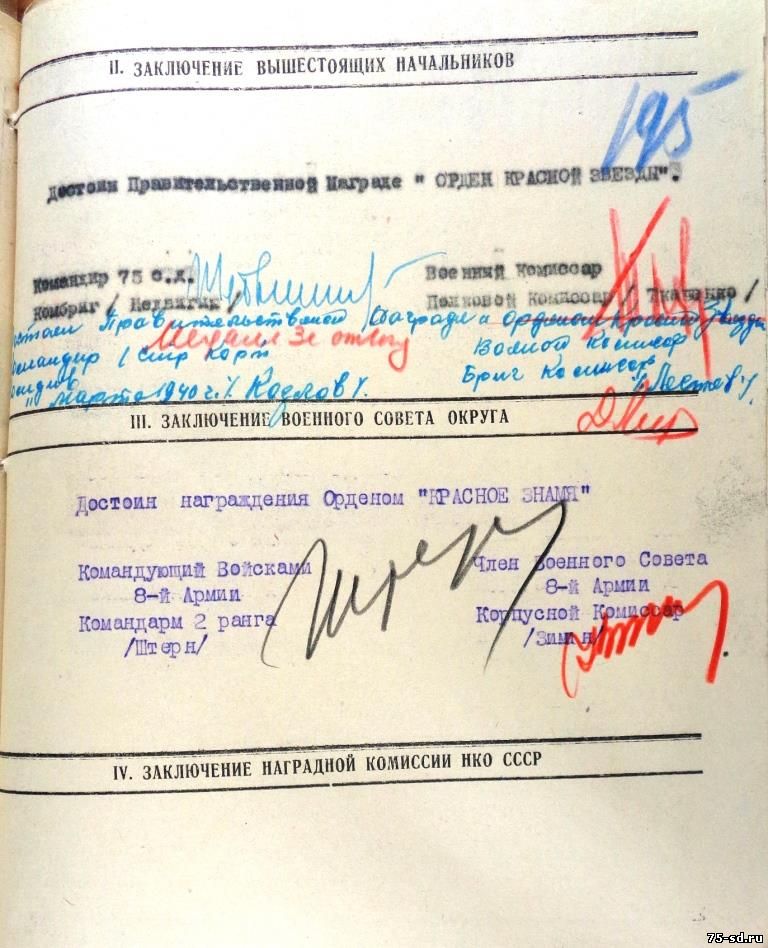 II. ЗАКЛЮЧЕНИЕ ВЫШЕСТОЯЩИХ НАЧАЛЬНИКОВ
195
Достоин Правительственной Награде " ОРДЕН КРАСНОЙ ЗВЕЗДЫ".
Командир 75 с.д. Военный Комиссар
Комбриг / Недвигин / Полковой Комиссар / Ткаченко /
Достоен Правительственной Награде Орденом Красной Звезды
Медаль За отвагу
Командир 1 Стр Корп Военный Комисар
Комдив Бриг Комисар
" Марта 1940 г. /Козлов/.
III. ЗАКЛЮЧЕНИЕ ВОЕННОГО СОВЕТА ОКРУГА
Достоин награждения Орденом "КРАСНОЕ ЗНАМЯ"
Командующий Войсками Член Военного Совета
8-й Армии 8-й Армии
Командарм 2 ранга Корпусной Комиссар
/Штерн/ /Зимин/
IV. ЗАКЛЮЧЕНИЕ НАГРАДНОЙ КОМИССИИ НКО СССР
75-sd.ru